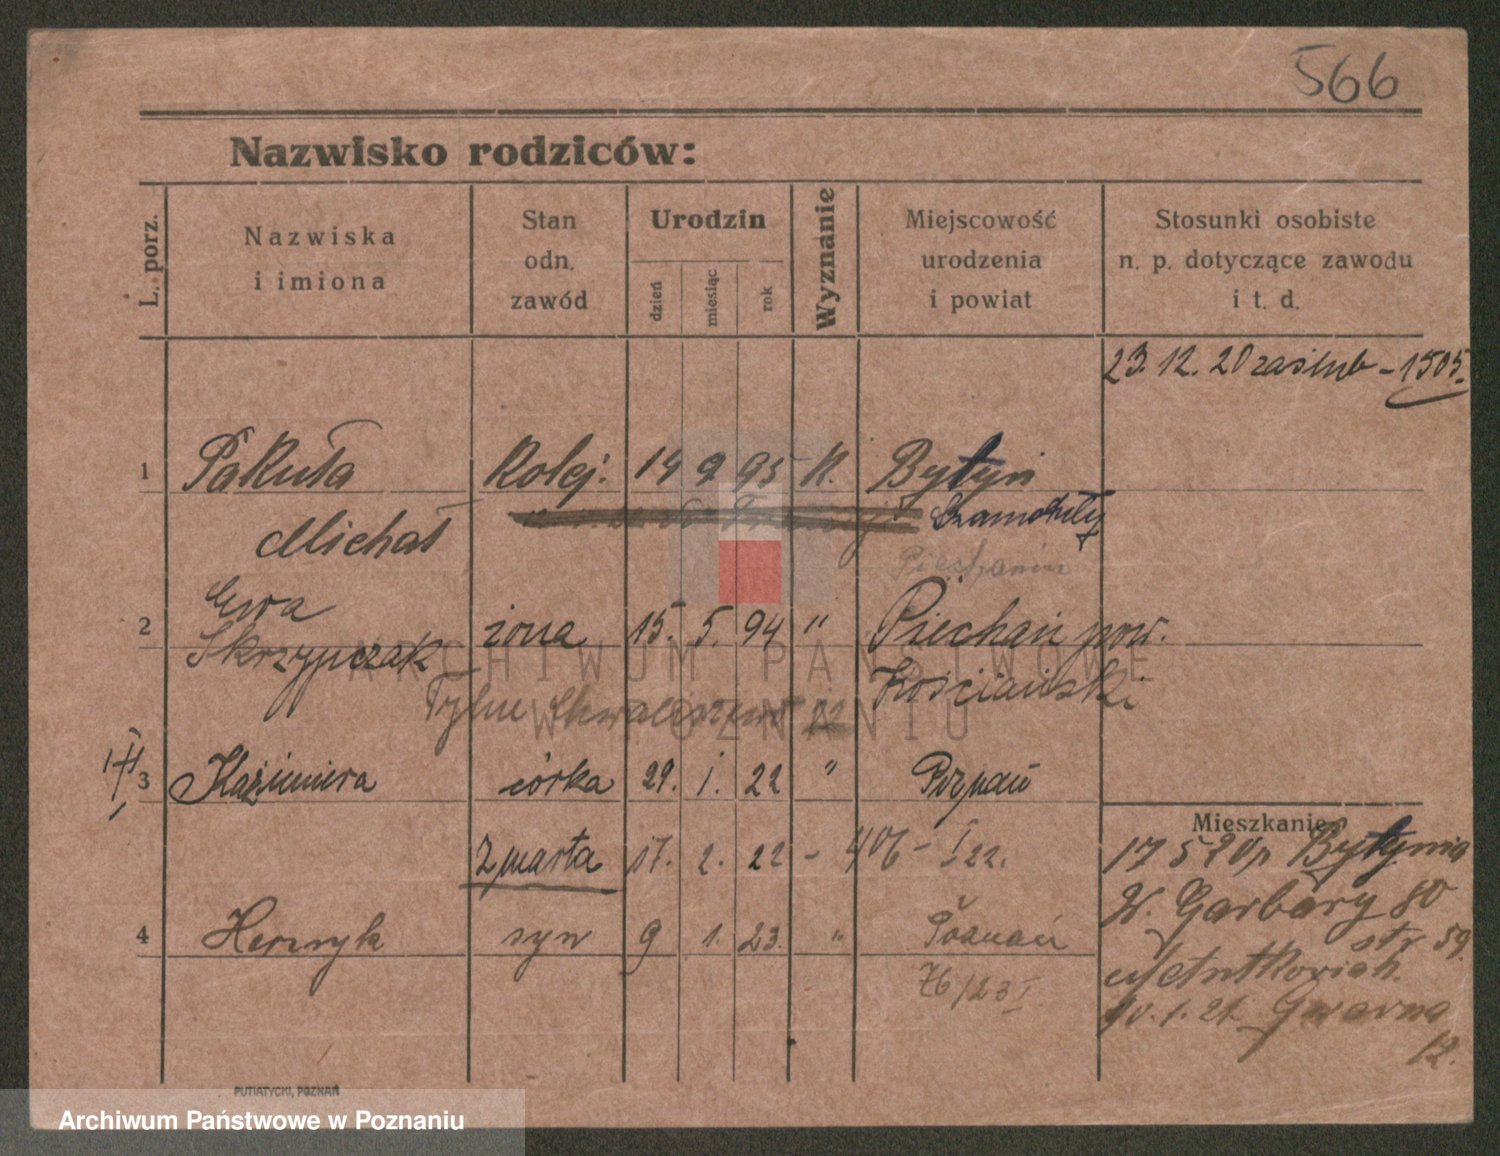 566
Nazwisko rodziców:
L. porz.
Nazwiska
i imiona
Stan
odn.
zawód
Urodzin
dzień
miesiąc
rok
Wyznanie
Miejscowość
urodzenia
i powiat
Stosunki osobiste
n. p. dotyczące zawodu
i t. d.
23. 12. 20 zaślub - 1505.
1 Pakuła Kolej. 14 9 95 K. Bytyń
Michał Szamotuły
Ewa
2 Skrzypczak żona 15. 5. 94 " Piechań pow.
Kościański
Tylne 22
3 Kaźimiera córka 29. 1. 22 " Poznań
Mieszkanie
zmarła 17. 2. 22 - 406 - I 22.
17 5 20 Bytynia
W. Garbary 80
4 Henryk syn 9 1. 23. " Poznań
str 59.
76/23 I.
1. 21. Gwarna
12.
PUTIATYCKI, POZNAŃ
ARCHIWUM PAŃSTWOWE
W POZNANIU
Archiwum Państwowe w Poznaniu